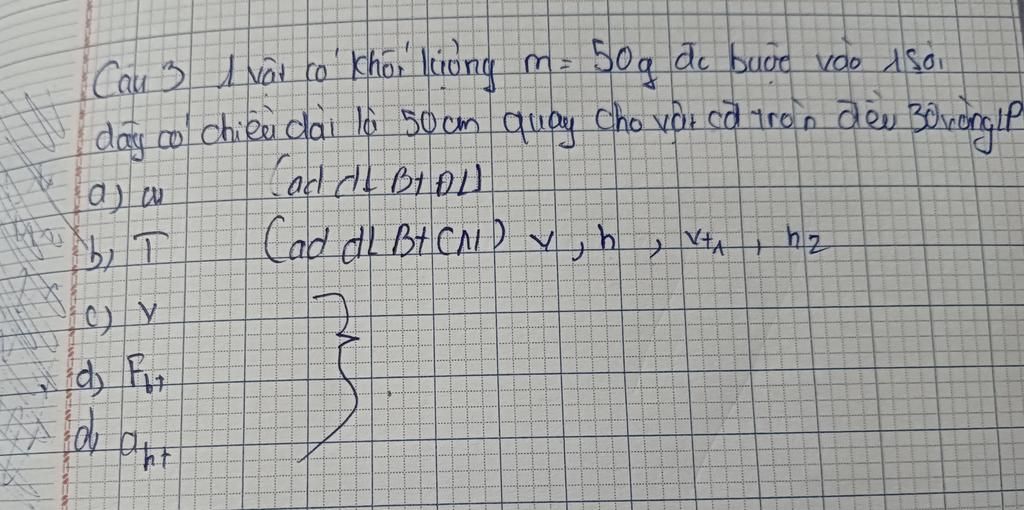 Câu 3 1 vật có khối lượng m = 50g đc buộc vào 1 sợi
dây có chiều dài là 50cm quay cho vật cđ tròn đều 30vòng/P
a) ω (ad đL Bt ĐL)
b) T (ad đL Bt CN) v, h, vt1, h2
c) v
d) Fht
d) aht